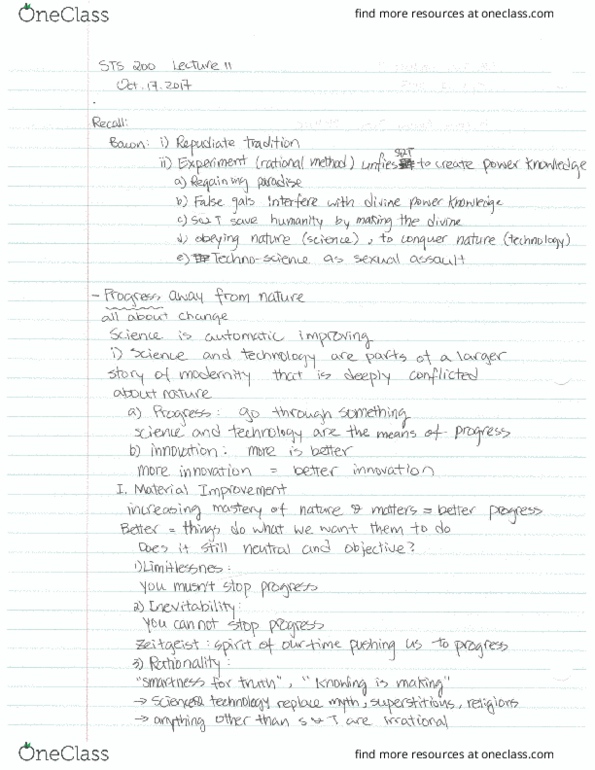 OneClass
find more resources at oneclass.com
STS 200 Lecture 11
Oct. 17. 2017
Recall:
Bacon: i) Repudiate tradition
ii) Experiment (rational method) unfies S&T to create power knowledge
a) Regaining paradise
b) False gals interfere with divine power knowledge
c) S&T save humanity by making the divine
d) obeying nature (science), to conquer nature (technology)
e) Techno-science as sexual assault
- Progress away from nature
all about change
Science is automatic improving
i) Science and technology are parts of a larger
story of modernity that is deeply conflicted
about nature
a) Progress: go through something
science and technology are the means of progress
b) innovation: more is better
more innovation = better innovation
I. Material Improvement
increasing mastery of nature & matters = better progress
Better = things do what we want them to do
Does it still neutral and objective?
1) Limitlessnes:
you musn't stop progress
2) Inevitability:
you cannot stop progress
Zeitgeist: spirit of our time pushing us to progress
3) Rationality:
"smartness for truth", "knowing is making"
→ Science & technology replace myth, superstitious, religions
→ anything other than S&T are irrational
OneClass
find more resources at oneclass.com